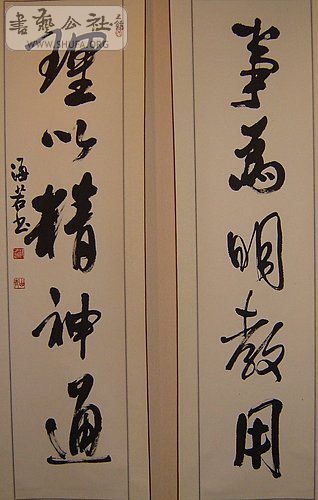 事為明教用
理以精神通
海若书
書藝公社
WWW.SHUFA.ORG